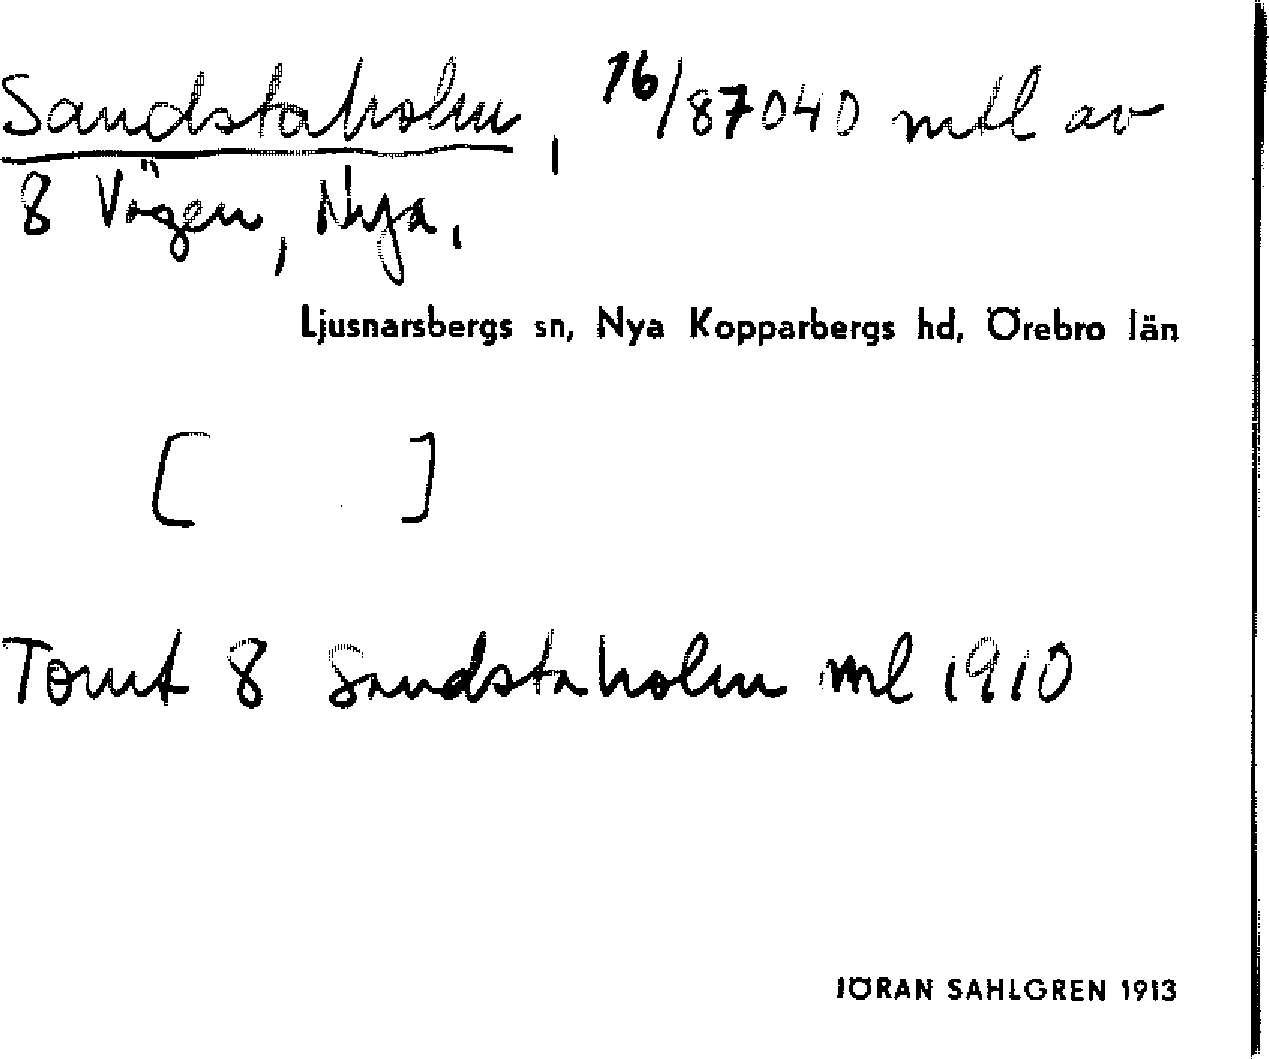 Sandstaholm, 16/87040 mtl av
8 Vägen, Nya,
Ljusnarsbergs sn, Nya Kopparbergs hd, Örebro län
[ ]
Tomt 8 Sandstaholm ml 1910
JÖRAN SAHLGREN 1913